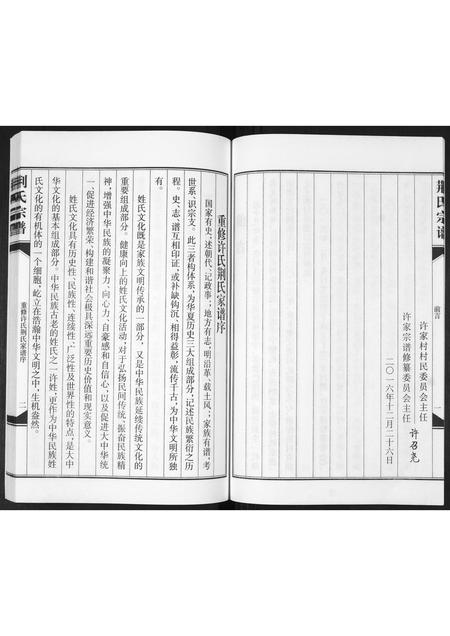 荆氏宗谱
前言
一
许家村村民委员会主任
许家宗谱修纂委员会主任
许召尧
二〇一六年十二月二十六日
重修许氏荆氏家谱序
国家有史，述朝代、记政事；地方有志，明沿革、载土风；家族有谱，考
世系、识宗支。此三者构体系，为华夏历史三大组成部分，记述民族繁衍之历
程。史、志、谱互相印证，或补缺钩沉、相得益彰，流传千古，为中华文明所独
有。
姓氏文化既是家族文明传承的一部分，又是中华民族延续传统文化的
重要组成部分。健康向上的姓氏文化活动，对于弘扬民间传统、振奋民族精
神，增强中华民族的凝聚力、向心力、自豪感和自信心，以及促进大中华统
一、促进经济繁荣、构建和谐社会极具深远重要历史价值和现实意义。
姓氏文化具有历史性、民族性、连续性、广泛性及世界性的特点，是大中
华文化的基本组成部分。中华民族古老的姓氏之一许姓，更作为中华民族姓
氏文化的有机体的一个细胞，屹立在浩瀚中华文明之中，生机盎然。
荆氏宗谱
重修许氏荆氏家谱序
二